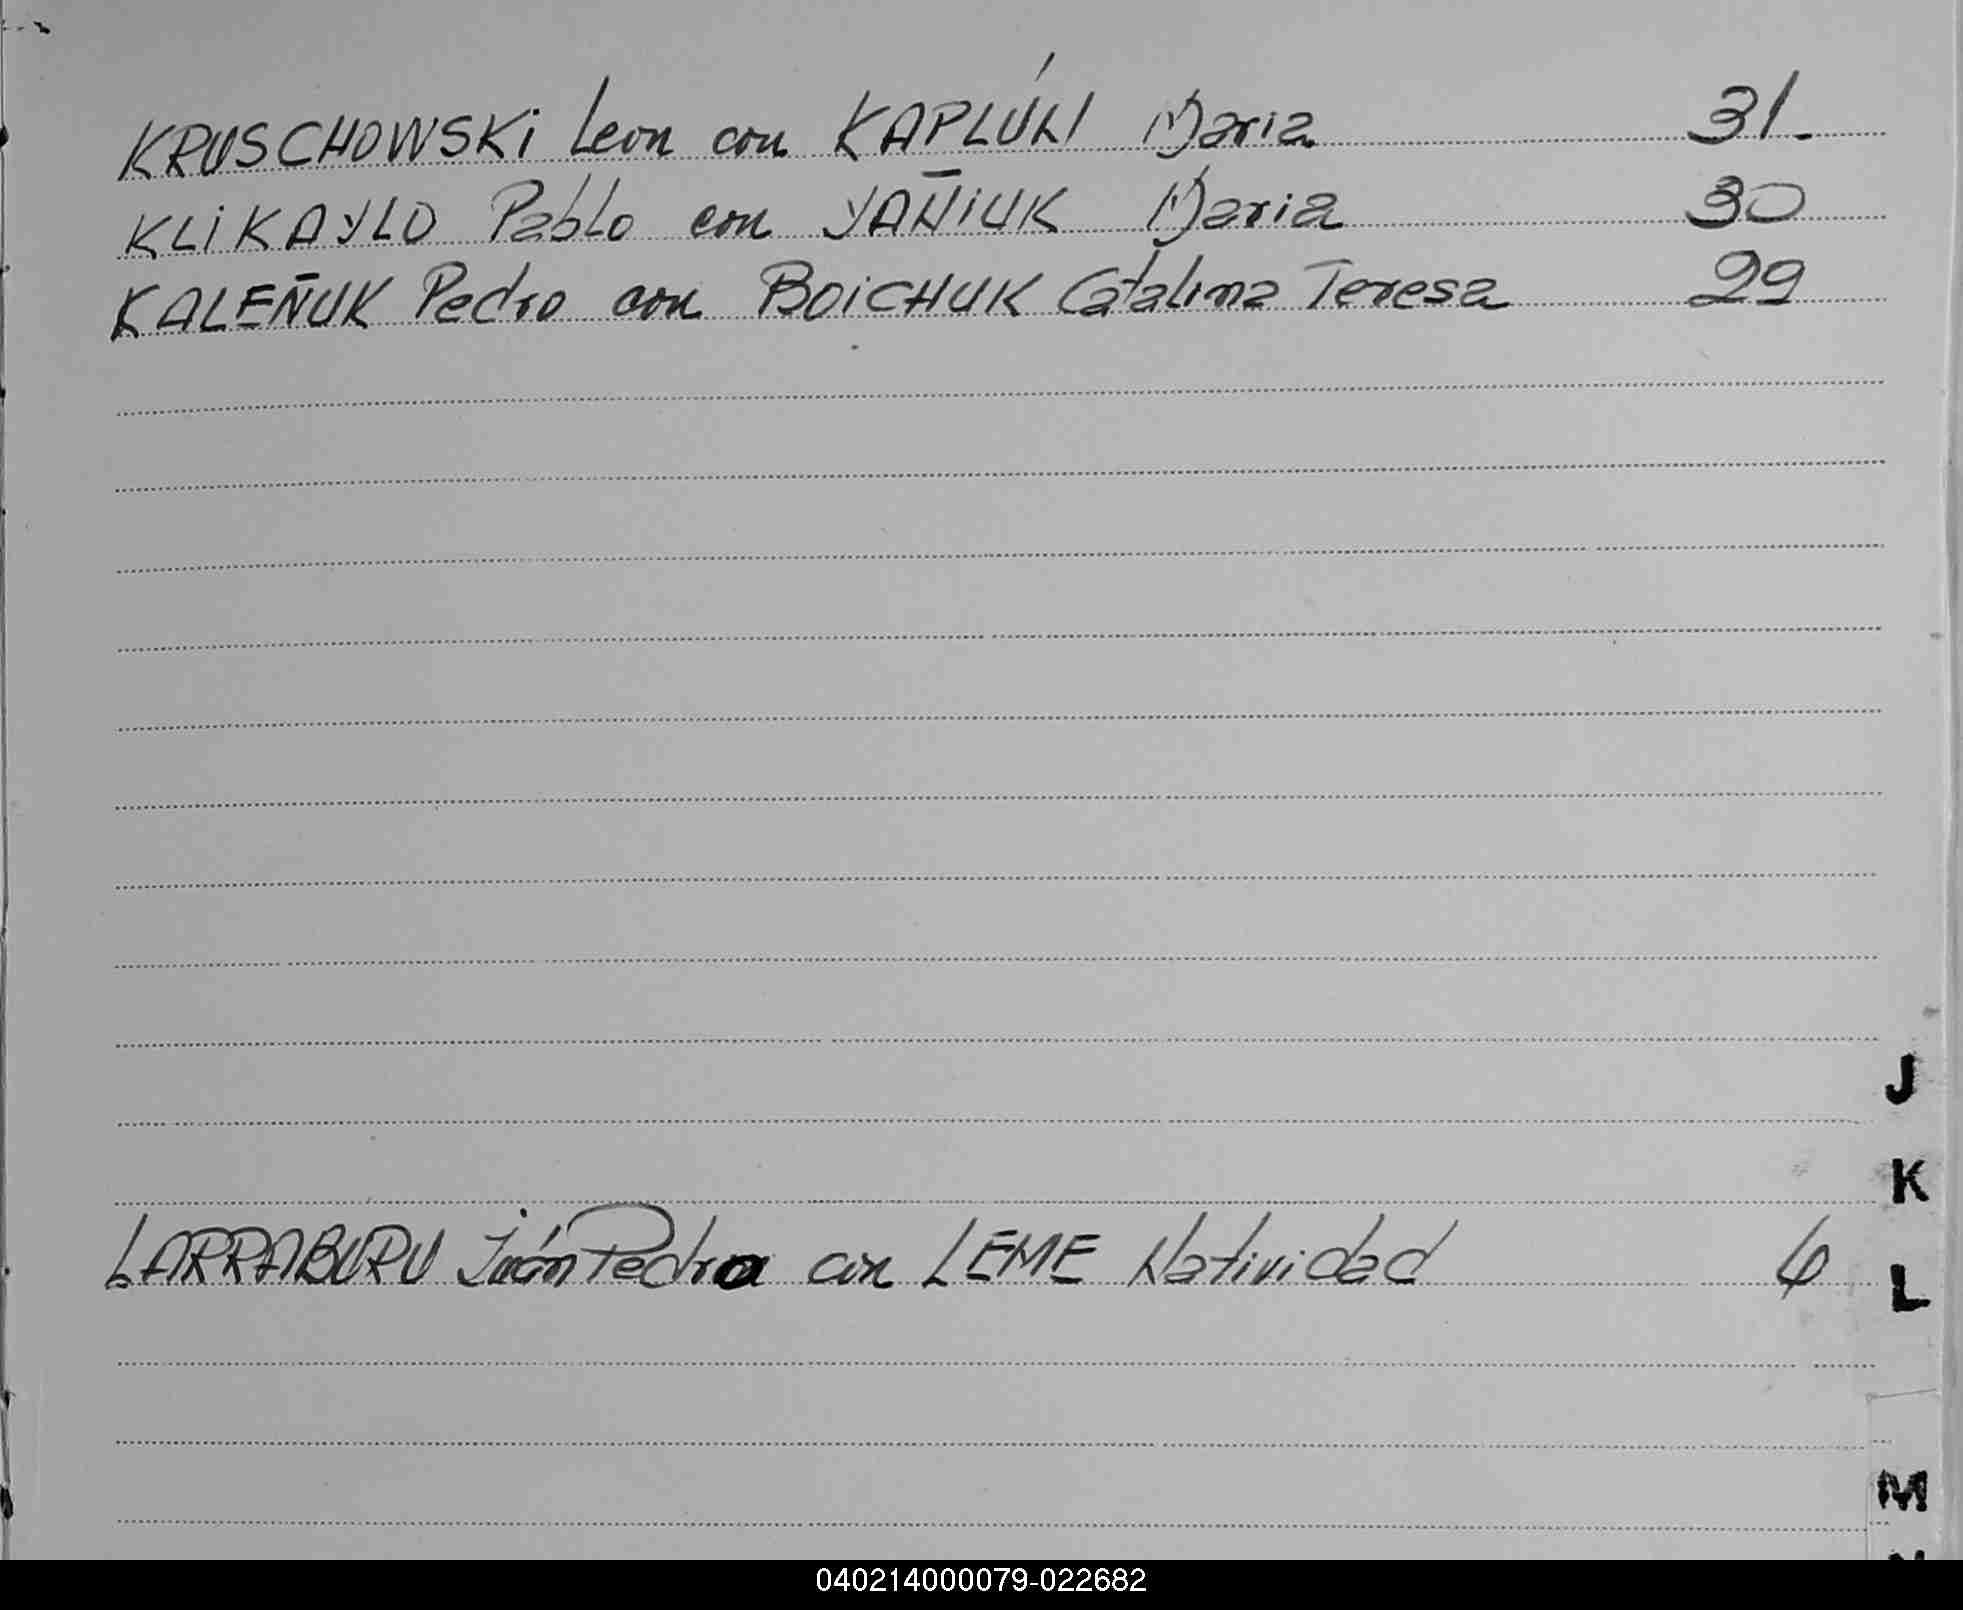 KRUSCHOWSKi Leon con KAPLÚN Maria 31.
KLiKAYLO Pablo con YAÑiUK Maria 30
KALEÑUK Pedro con BOiCHUK Catalina Teresa 29
J
K
LARRABURU Juán Pedro con LEME Natividad
L
M
040214000079-022682